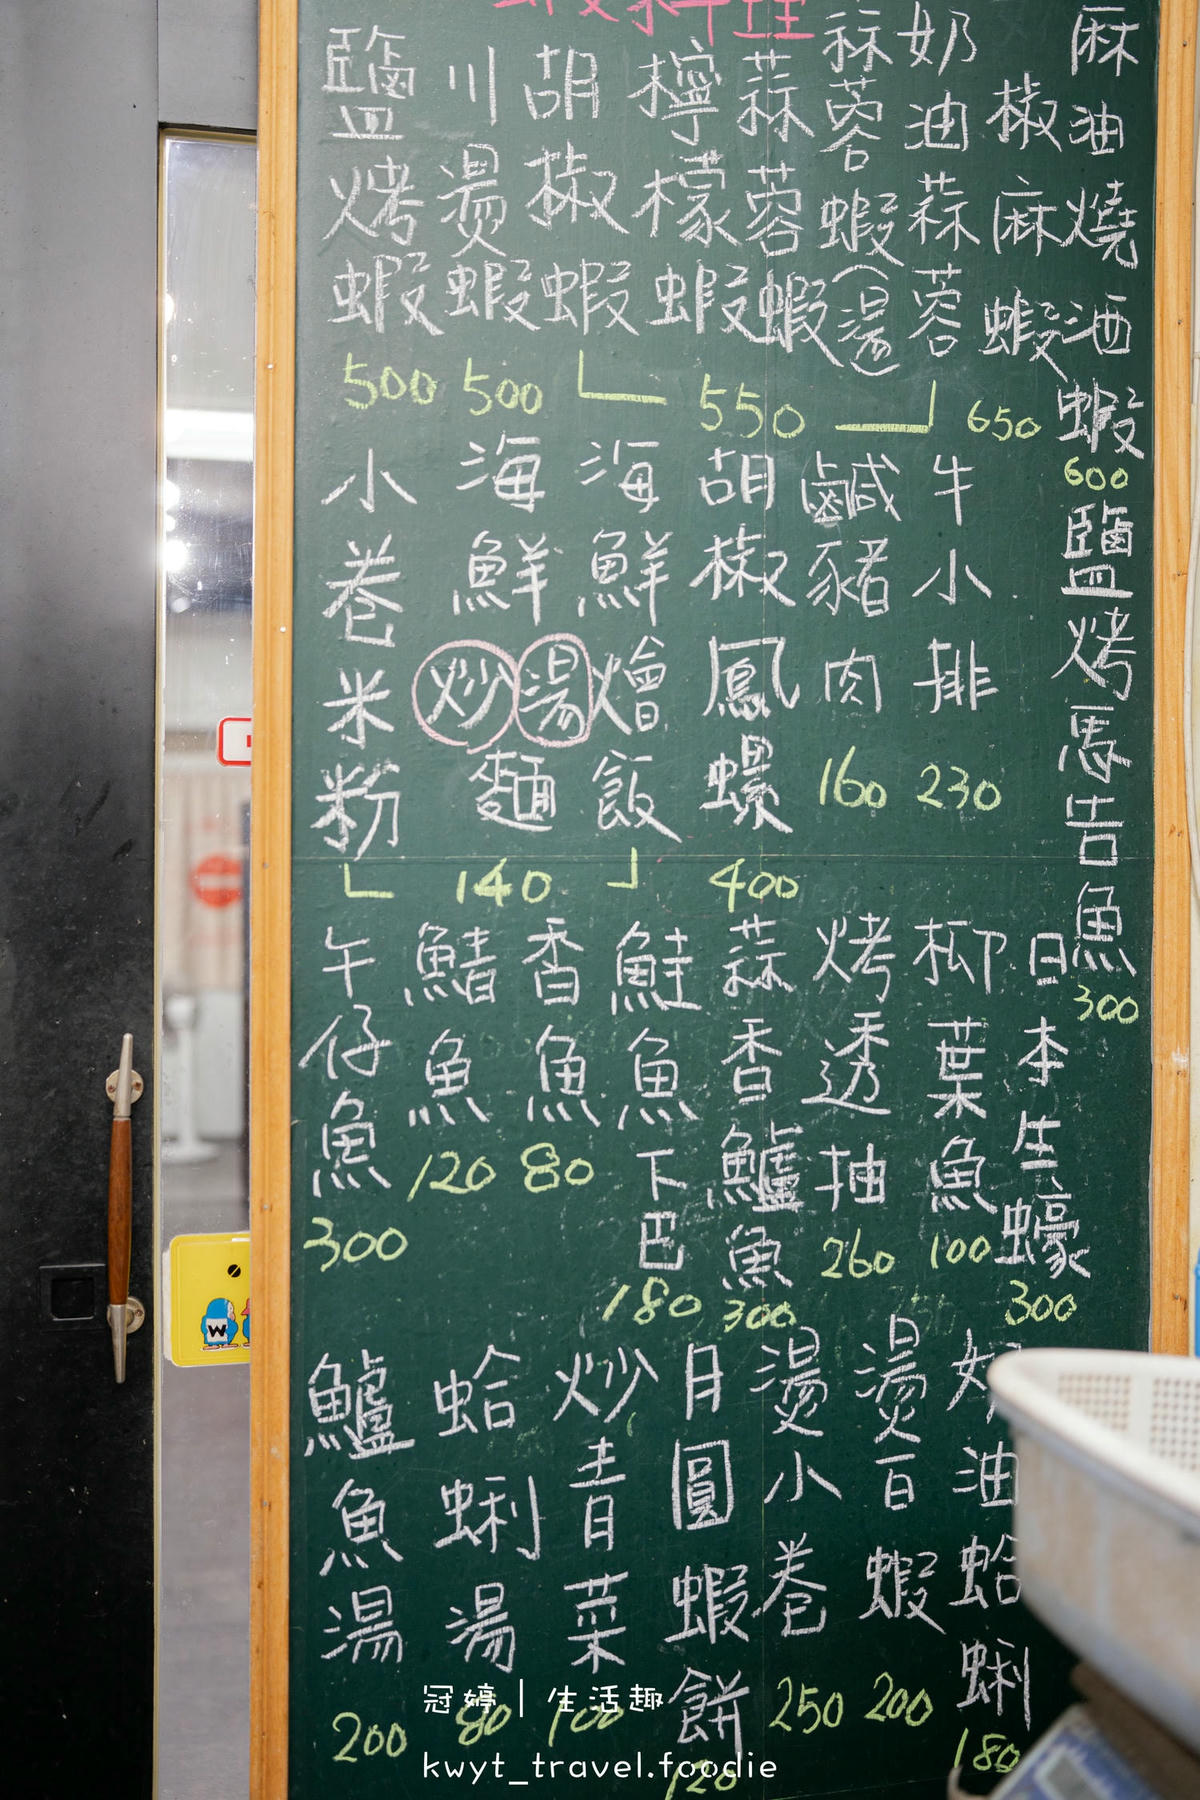 蝦料理
鹽烤蝦
500
川燙蝦
500
胡椒蝦
檸檬蝦
蒜蓉蝦
蒜蓉蝦(湯)
奶油蒜蓉
550
椒麻蝦
650
麻油燒酒蝦
600
小卷米粉
海鮮炒湯麵
海鮮燴飯
140
胡椒鳳螺
400
鹹豬肉
160
牛小排
230
鹽烤馬告魚
300
午仔魚
300
鯖魚
120
香魚
80
鮭魚下巴
180
蒜香鱸魚
300
烤透抽
260
柳葉魚
100
日本生蠔
300
鱸魚湯
200
蛤蜊湯
80
炒青菜
100
月圓蝦餅
120
燙小卷
250
燙百蝦
200
奶油蛤蜊
180
W
冠婷 | 生活趣
kwyt_travel.foodie